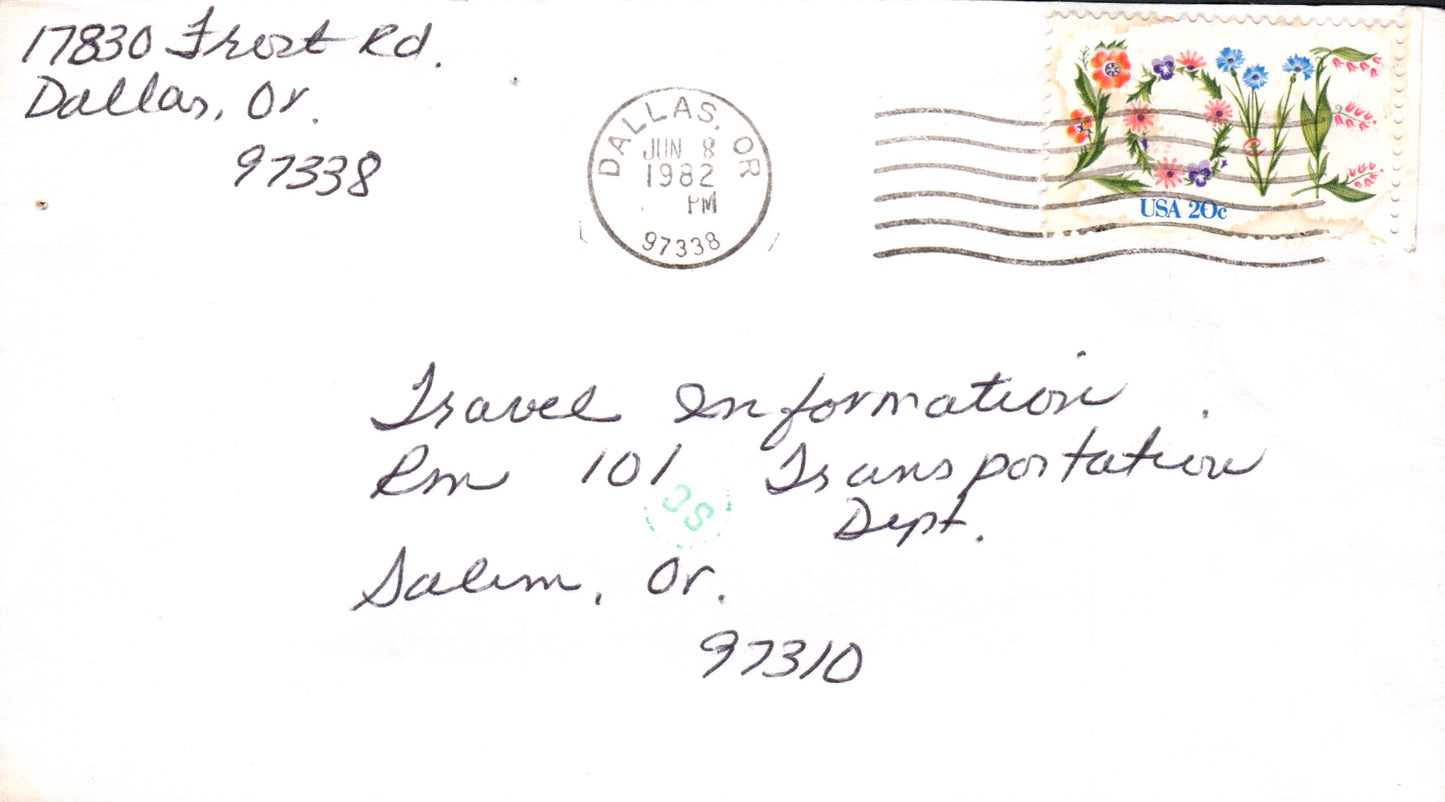 17830 Frost Rd.
Dallas, Or.
97338
DALLAS, OR
JUN 8
1982
PM
97338
LOVE
USA 20c
Travel Information
Rm 101 Transportation
Dept.
Salem, Or.
97310